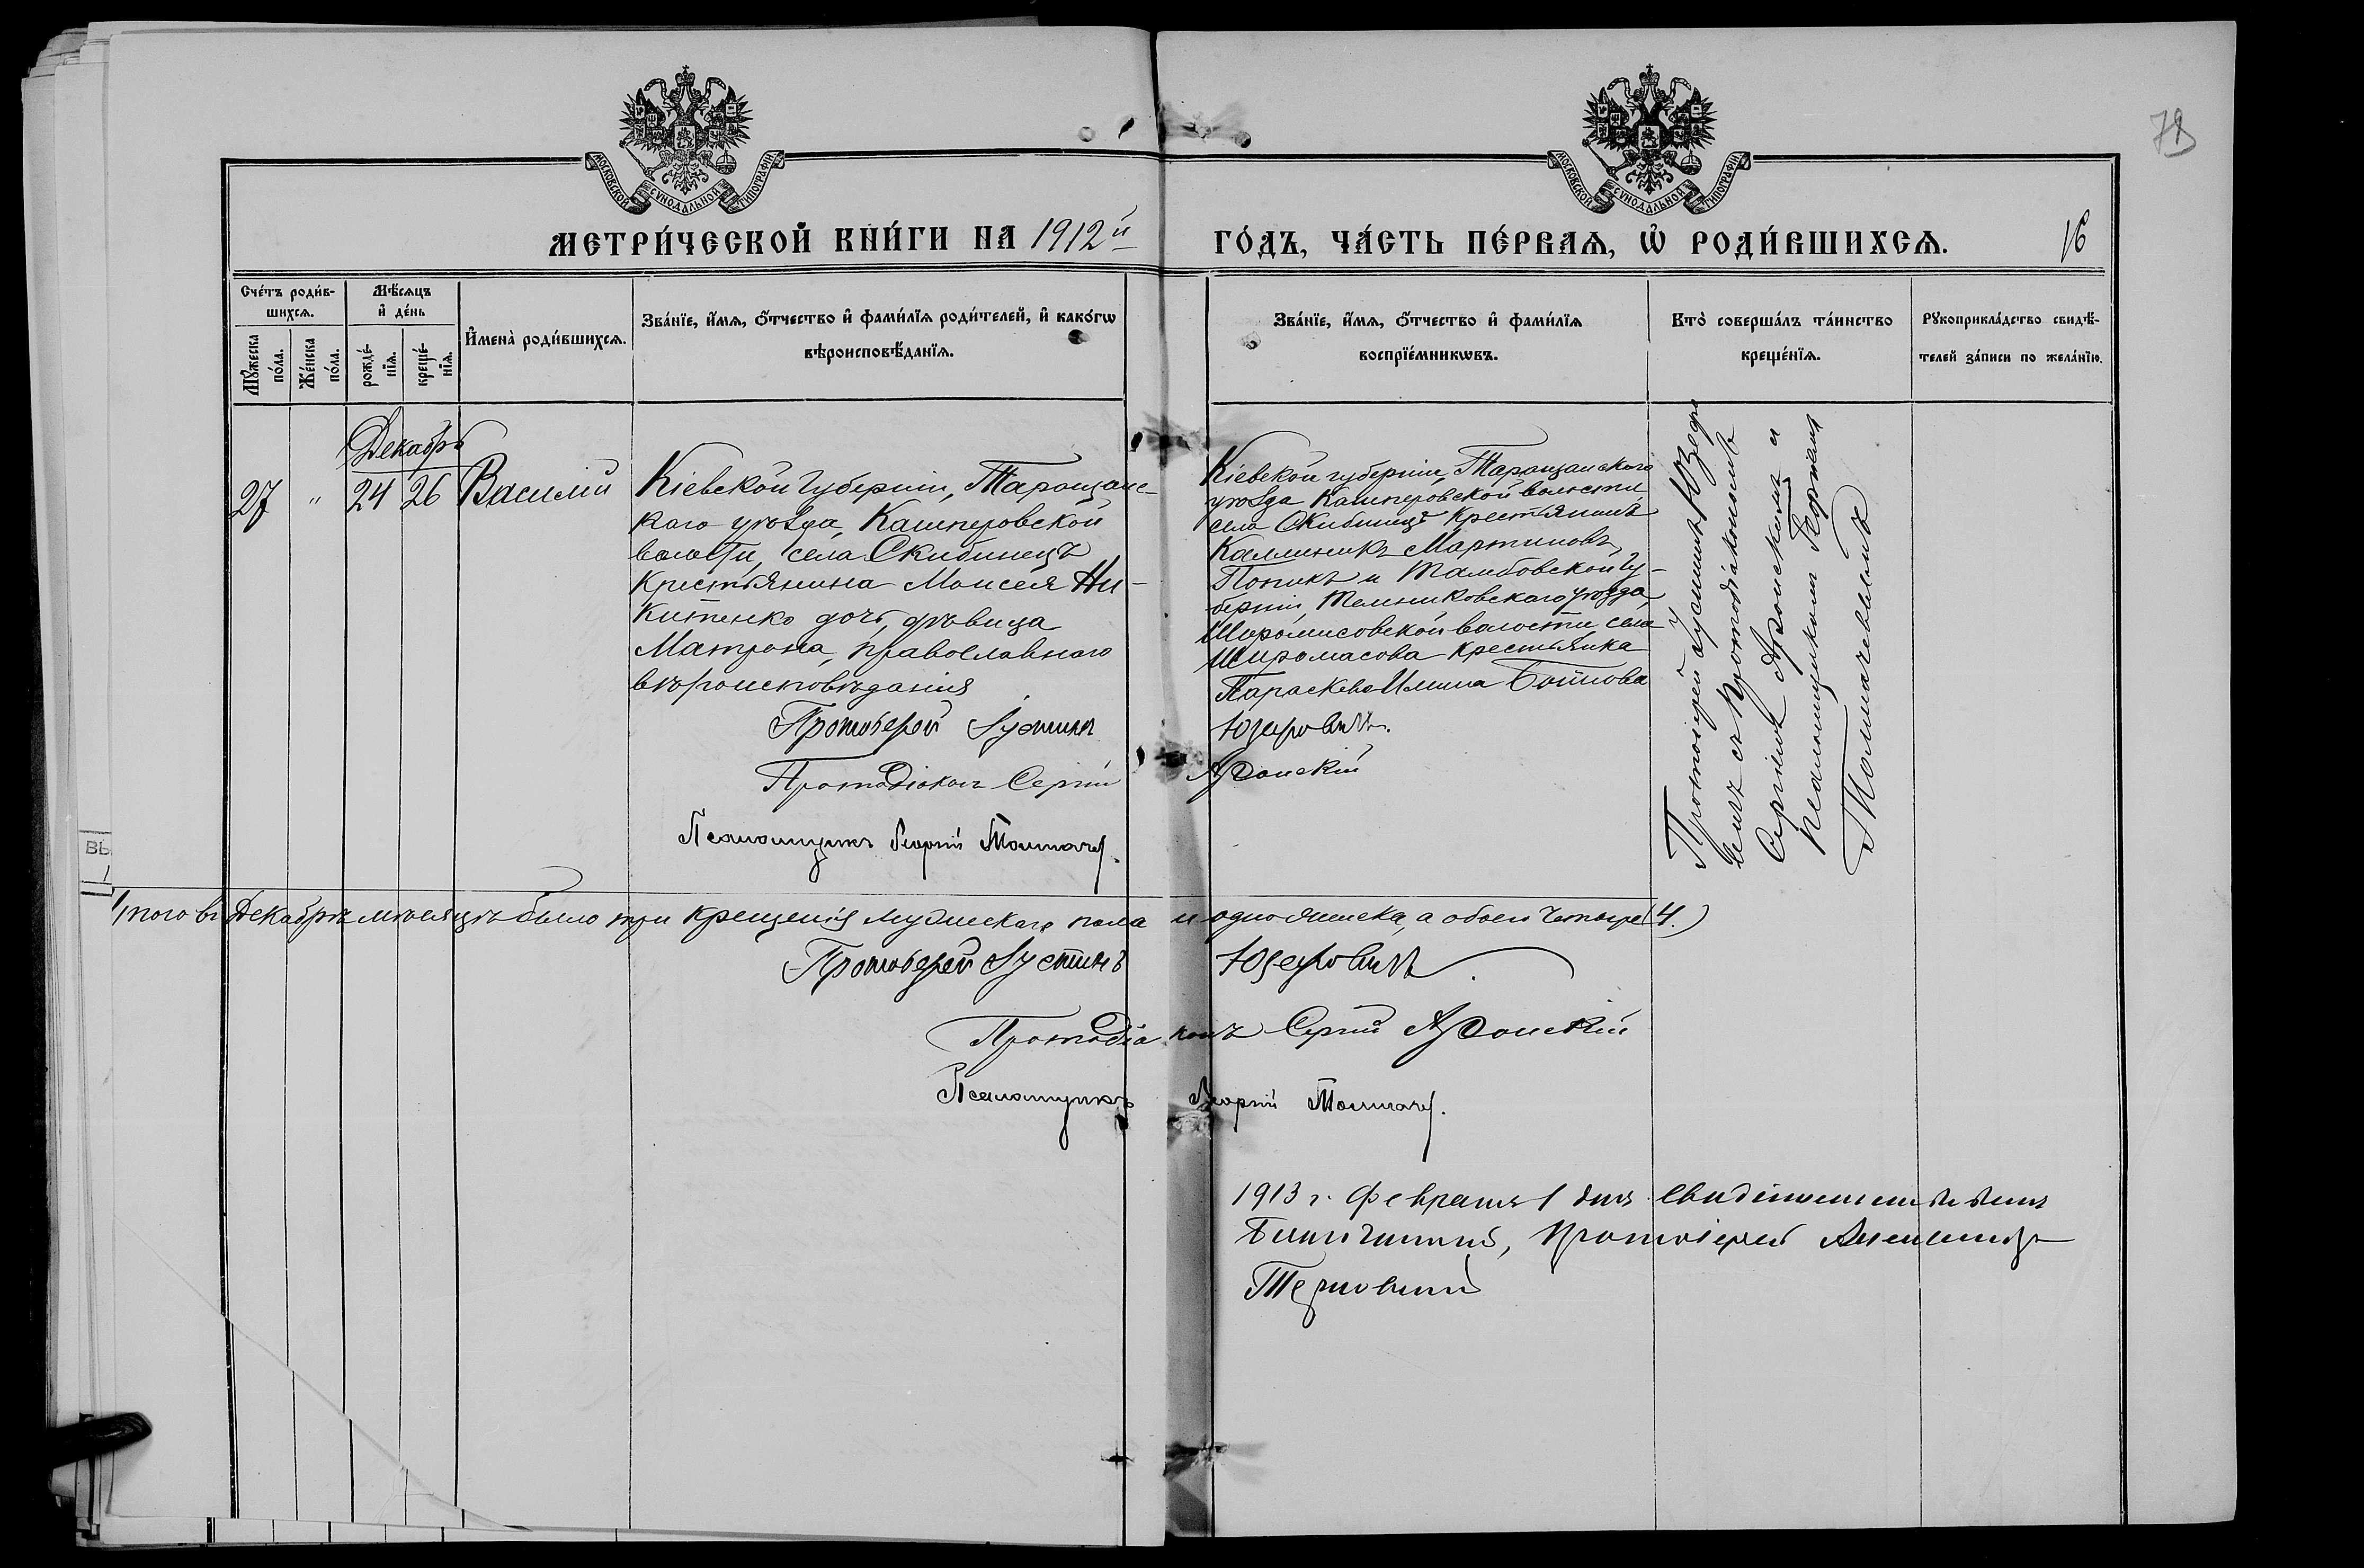 МОСКОВСКОЙ СѴНОДАЛЬНОЙ ТИПОГРАФІИ
МОСКОВСКОЙ СѴНОДАЛЬНОЙ ТИПОГРАФІИ
78
МЕТРИ́ЧЕСКОЙ КНИ́ГИ НА 1912й
ГО́ДЪ, ЧА́СТЬ ПЕ́РВАѦ, Ѡ҆ РОДИ́ВШИХСѦ.
16
Сче́тъ роди́в-
шихсѧ.
Мꙋ́жеска
по́ла.
Же́нска
по́ла.
Мѣ́сѧцъ
и҆ де́нь
рожде́-
нїѧ.
креще́-
нїѧ.
И҆мена̀ роди́вшихсѧ.
Зва́нїе, и҆́мѧ, ѻ҆́тчество и҆ фами́лїѧ роди́телей, и҆ како́гѡ
вѣроисповѣ́данїѧ.
Зва́нїе, и҆́мѧ, ѻ҆́тчество и҆ фами́лїѧ
воспрїе́мникѡвъ.
Кто̀ соверша́лъ та́инство
креще́нїѧ.
Рꙋкоприкла́дство свидѣ́-
телей за́писи по жела́нїю.
Декабрь
27 " 24 26 Василій
Кіевской губерніи, Таращанс-
каго уѣзда, Кашперовской
волости, села Скибинецъ
крестьянина Моисея Ни-
китенко дочь, дѣвица
Матрона, православнаго
вѣроисповѣданія
Кіевской губерніи, Таращанскаго
уѣзда Кашперовской волости
села Скибинецъ крестьянинъ
Каллиникъ Мартиновъ
Попикъ и Тамбовской гу-
берніи, Темниковскаго уѣзда,
Широмасовской волости села
Широмасова крестьянка
Параскева Ильина Ботнова
Протоіерей Іустинъ Юзефо
вичъ съ протодіакономъ
Сергіемъ Адонскимъ и
псаломщикомъ Георгіемъ
Толмачевымъ
Протоіерей Іустинъ Юзефовичъ.
Протодіаконъ Сергій Адонскій
Псаломщикъ Георгій Толмачев.
Итого въ Декабрѣ мѣсяцѣ было три крещенія мужескаго пола и одно женска, а обоего четыре (4.)
Протоіерей Іустинъ Юзефовичъ.
Протодіаконъ Сергій Адонскій
Псаломщикъ Георгій Толмачев.
1913 г. Февраля 1 дня свидѣтельствовалъ
Благочинный, Протоіерей Александръ
Терновский